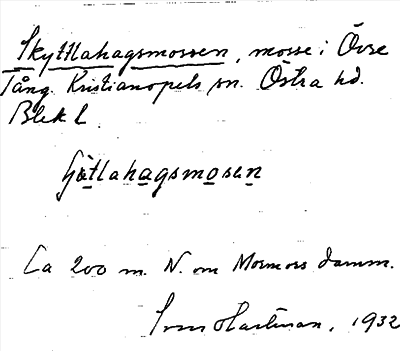 Skyttlahagsmossen, mosse i Övre
Tång. Kristianopels sn. Östra hd.
Blek l.
Ca 200 m. N. om Mormors damm.
Hartman, 1932